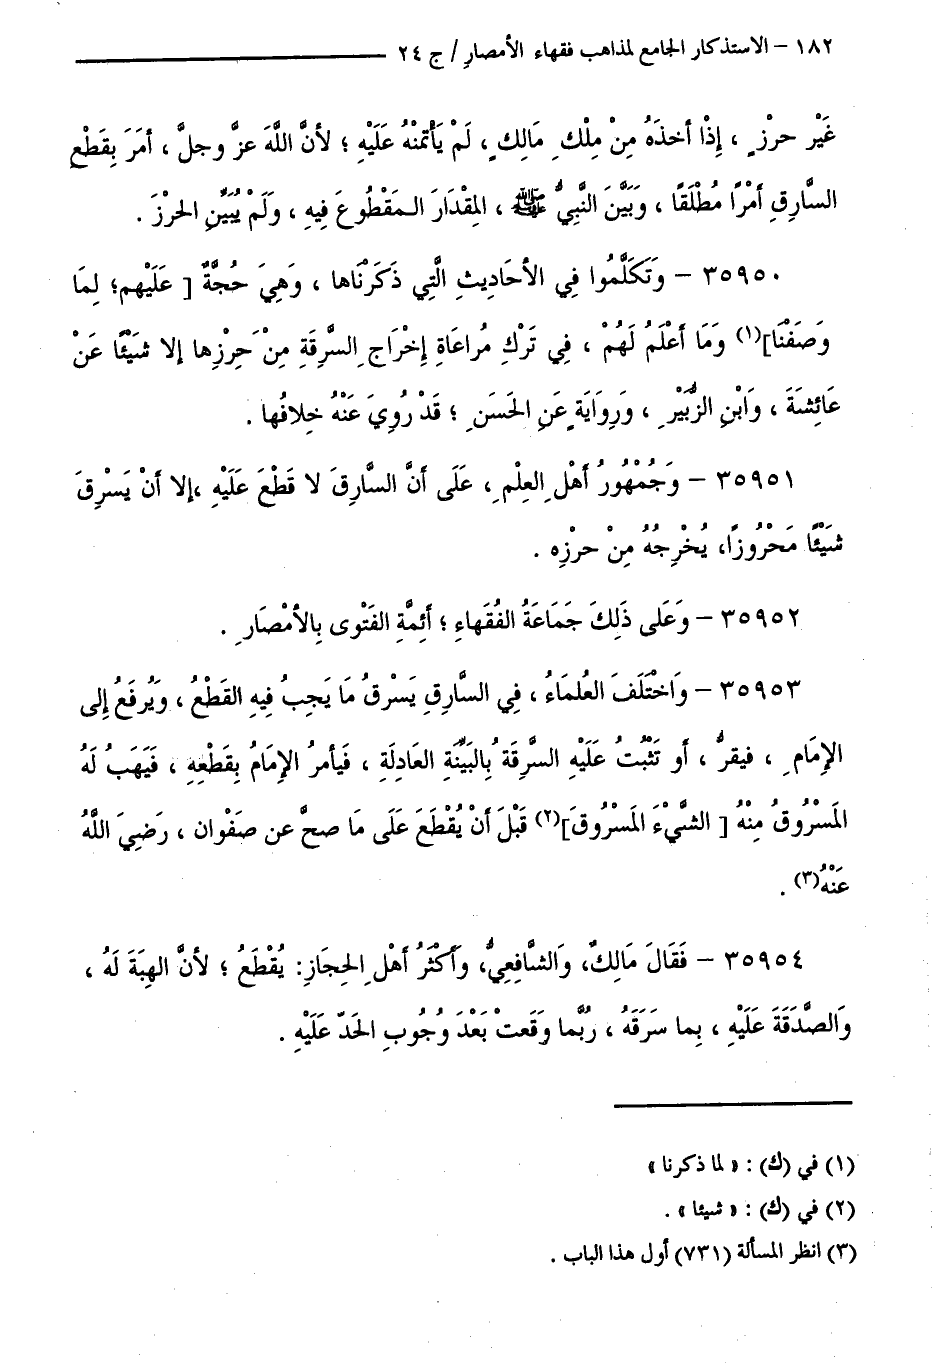 ١٨٢ – الاستذكار الجامع لمذاهب فقهاء الأمصار / ج ٢٤
غَيْر حرْزٍ ، إِذْا أخذَهُ مِنْ مِلْكِ مَالِكٍ ، لَمْ يَأْتَمِنْهُ عَلَيْهِ ؛ لأنَّ اللَّهَ عزَّ وجلَّ ، أمَرَ بِقَطْعِ
السَّارِقِ أَمْرًا مُطْلَقًا ، وَبَيَّنَ النَّبِيُّ ﷺ ، المِقْدَارَ المَقْطُوعَ فِيهِ ، وَلَمْ يُبَيِّنِ الحرْزَ .
٣٥٩٥٠ – وَتَكَلَّمُوا فِي الأحَادِيثِ الَّتِي ذَكَرْنَاها ، وَهِيَ حُجَّةٌ [ عَلَيْهم؛ لِمَا
وَصَفْنَا](١) وَمَا أَعْلَمُ لَهُمْ ، فِي تَرْكِ مُراعَاةِ إِخْرَاجِ السَّرِقَةِ مِنْ حَرِزِها إلا شَيْئًا عَنْ
عَائِشَةَ ، وَابْنِ الزُّبَيْرِ ، وَرِوَايَةٍ عَنِ الحَسَنِ ؛ قَدْ رُوِيَ عَنْهُ خِلافُها .
٣٥٩٥١ – وَجُمْهُورُ أَهْلِ العِلْمِ ، عَلَى أَنَّ السَّارِقَ لا قَطْعَ عَلَيْهِ ،إلا أَنْ يَسْرِقَ
شَيْئًا مَحْرُوزًا، يُخْرِجُهُ مِنْ حرْزِه .
٣٥٩٥٢ – وَعَلى ذَلِكَ جَمَاعَةُ الفُقَهاءِ ؛ أَئِمَّةِ الفَتْوى بِالأمْصَارِ .
٣٥٩٥٣ – وَاخْتَلَفَ العُلمَاءُ ، فِي السَّارِقِ يَسْرِقُ مَا يَجِبُ فِيهِ القَطْعُ ، وَيُرفَعُ إِلى
الإِمَامِ ، فيقرُّ ، أو تَثْبُتُ عَلَيْهِ السرِقَةُ بِالبَيِّنَةِ العَادلَةِ ، فَيأمرُ الإِمَامُ بِقَطْعِهِ ، فَيَهَبُ لَهُ
المَسْرُوقُ مِنْهُ [ الشَّيْءَ المَسْرُوقَ](٢) قَبْلَ أَنْ يُقْطَعَ عَلَى مَا صحَّ عن صَفْوان ، رَضِيَ اللَّهُ
عَنْهُ(٣) .
٣٥٩٥٤ – فَقَالَ مَالِكٌ، وَالشَّافِعِيُّ، وأَكْثَرُ أَهْلِ الحِجَازِ: يُقْطَعُ ؛ لأنَّ الهِبَةَ لَهُ ،
وَالصَّدَقَةَ عَلَيْهِ ، بِما سَرَقَهُ ، رُبَّما وَقَعتْ بَعْدَ وُجُوبِ الحَدّ عَلَيْهِ .
(١) في (ك) : « لما ذكرنا »
(٢) في (ك) : « شيئا » .
(٣) انظر المسألة (٧٣١) أول هذا الباب .